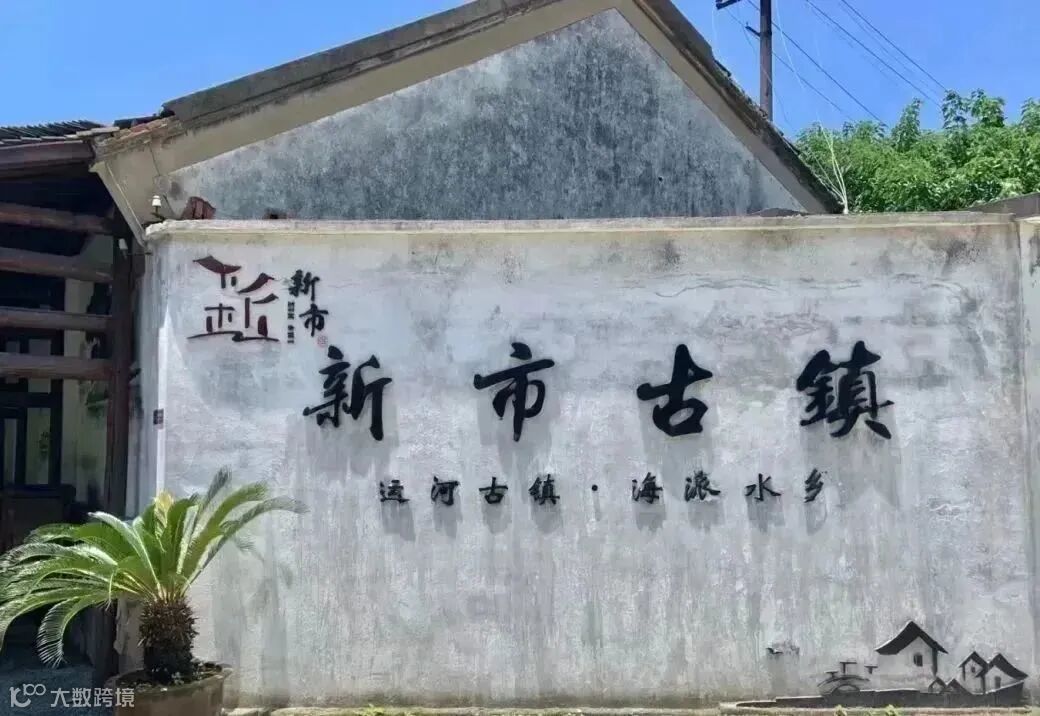 新市
新市古鎮
运河古镇·海派水乡
大数跨境